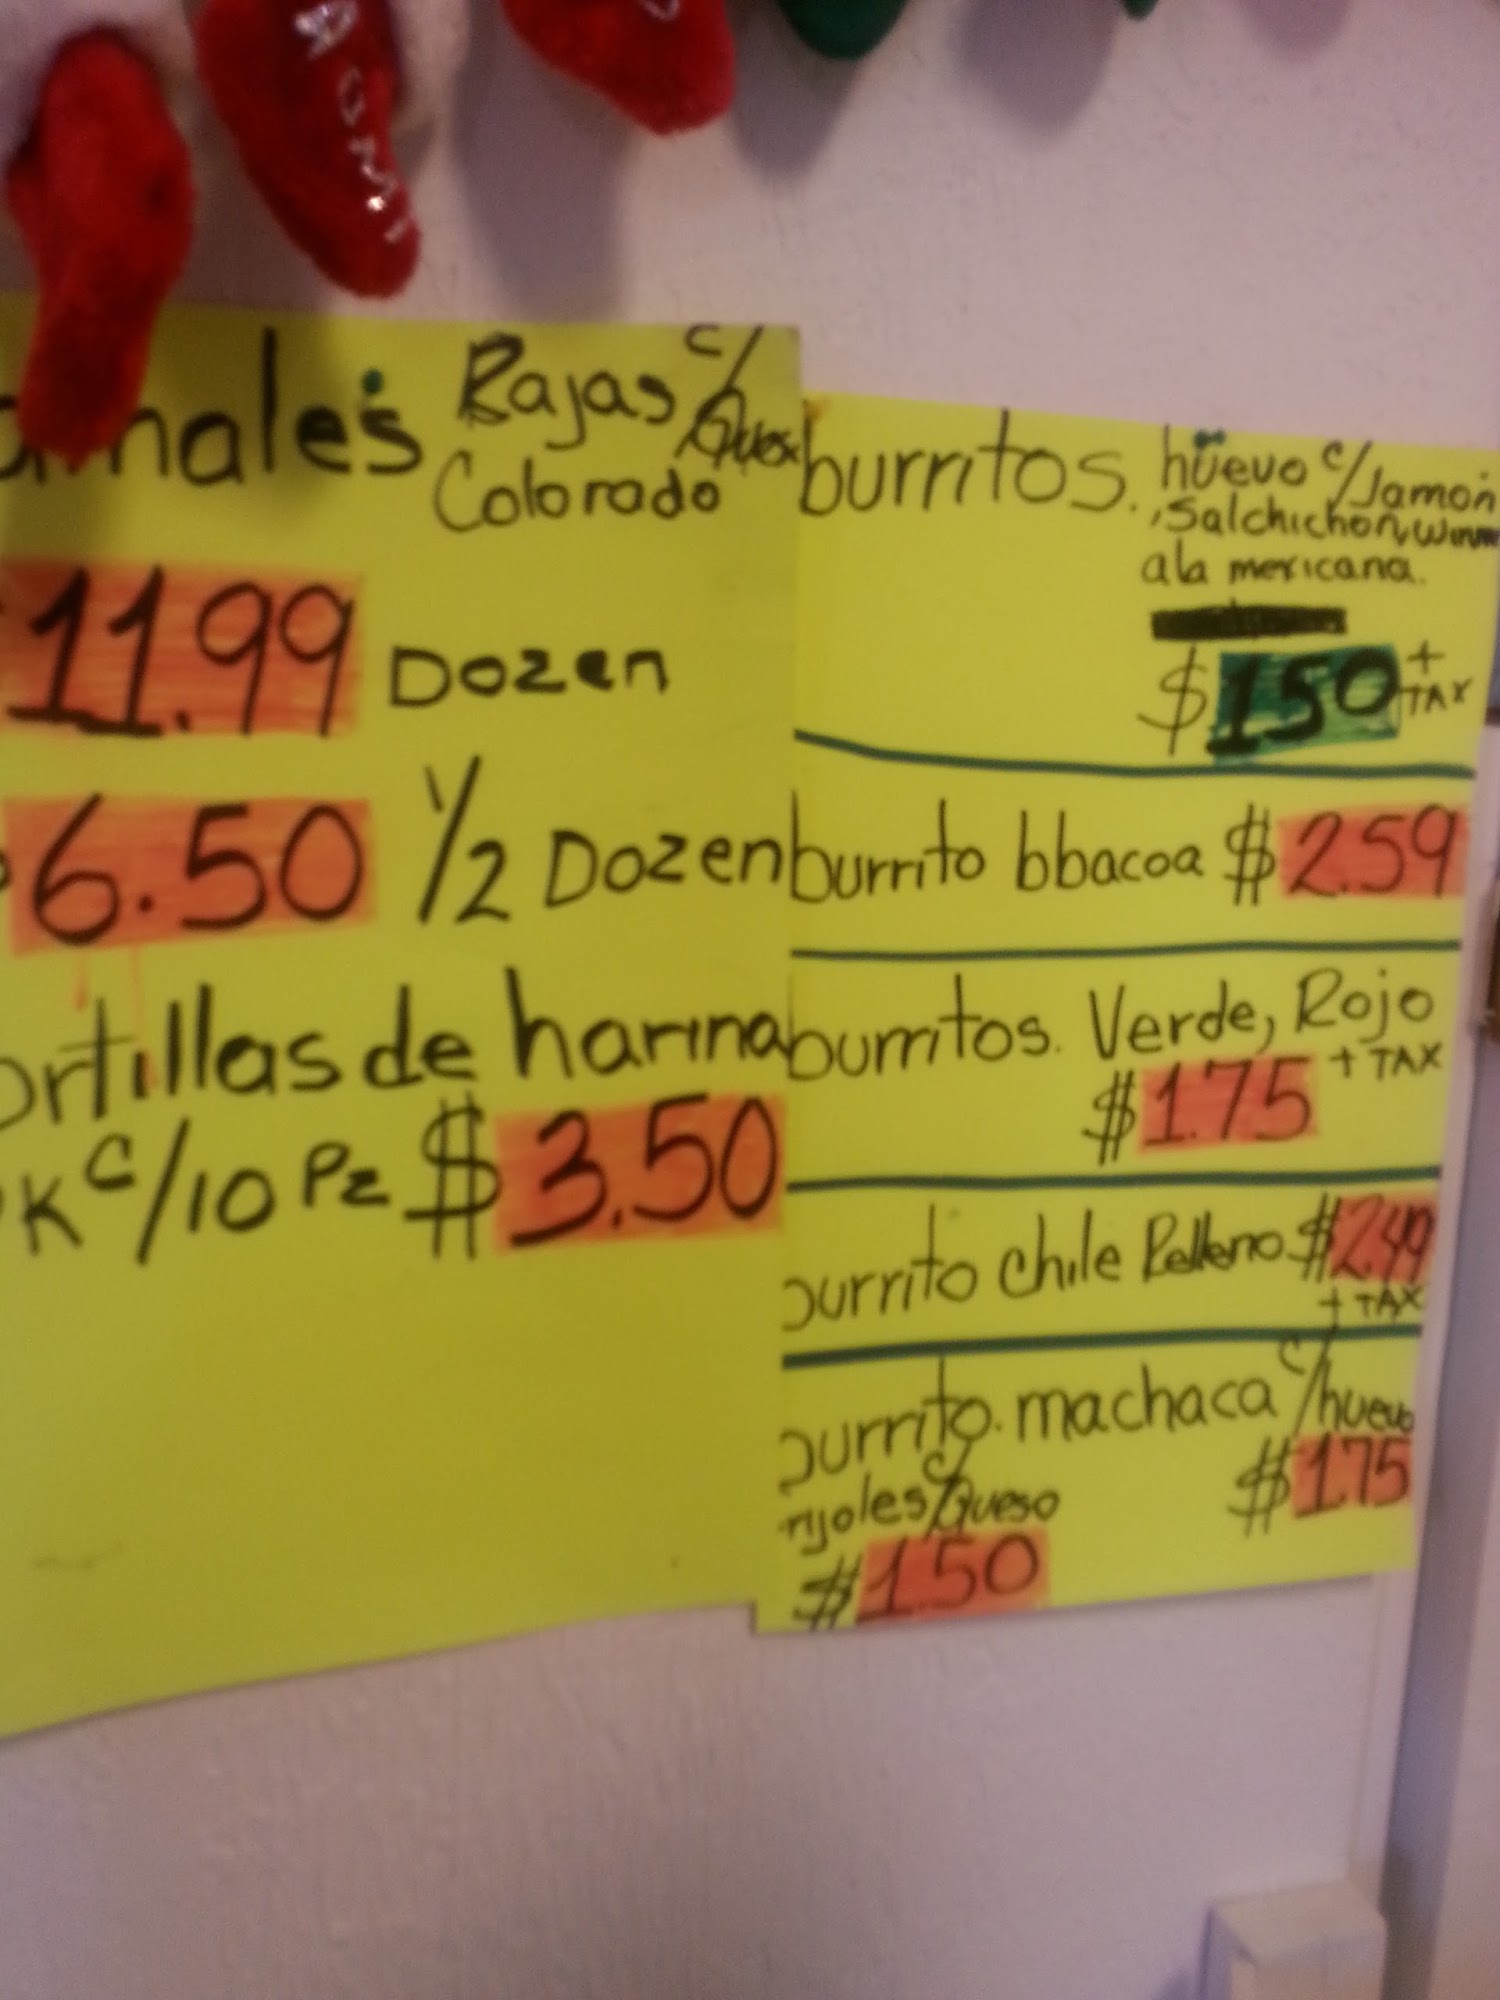 Tamales Rajas c/Queso
Colorado
11.99 Dozen
6.50 1/2 Dozen
ortillas de harina
K c/10 Pz $3.50
burritos. huevo c/Jamon
,Salchichon,
ala mexicana.
$150 + TAX
burrito bbacoa $2.59
burritos. Verde, Rojo
$1.75 + TAX
burrito chile Relleno $2.49
+ TAX
burrito. machaca c/huevo
$1.75
rijoles c/Queso
$1.50